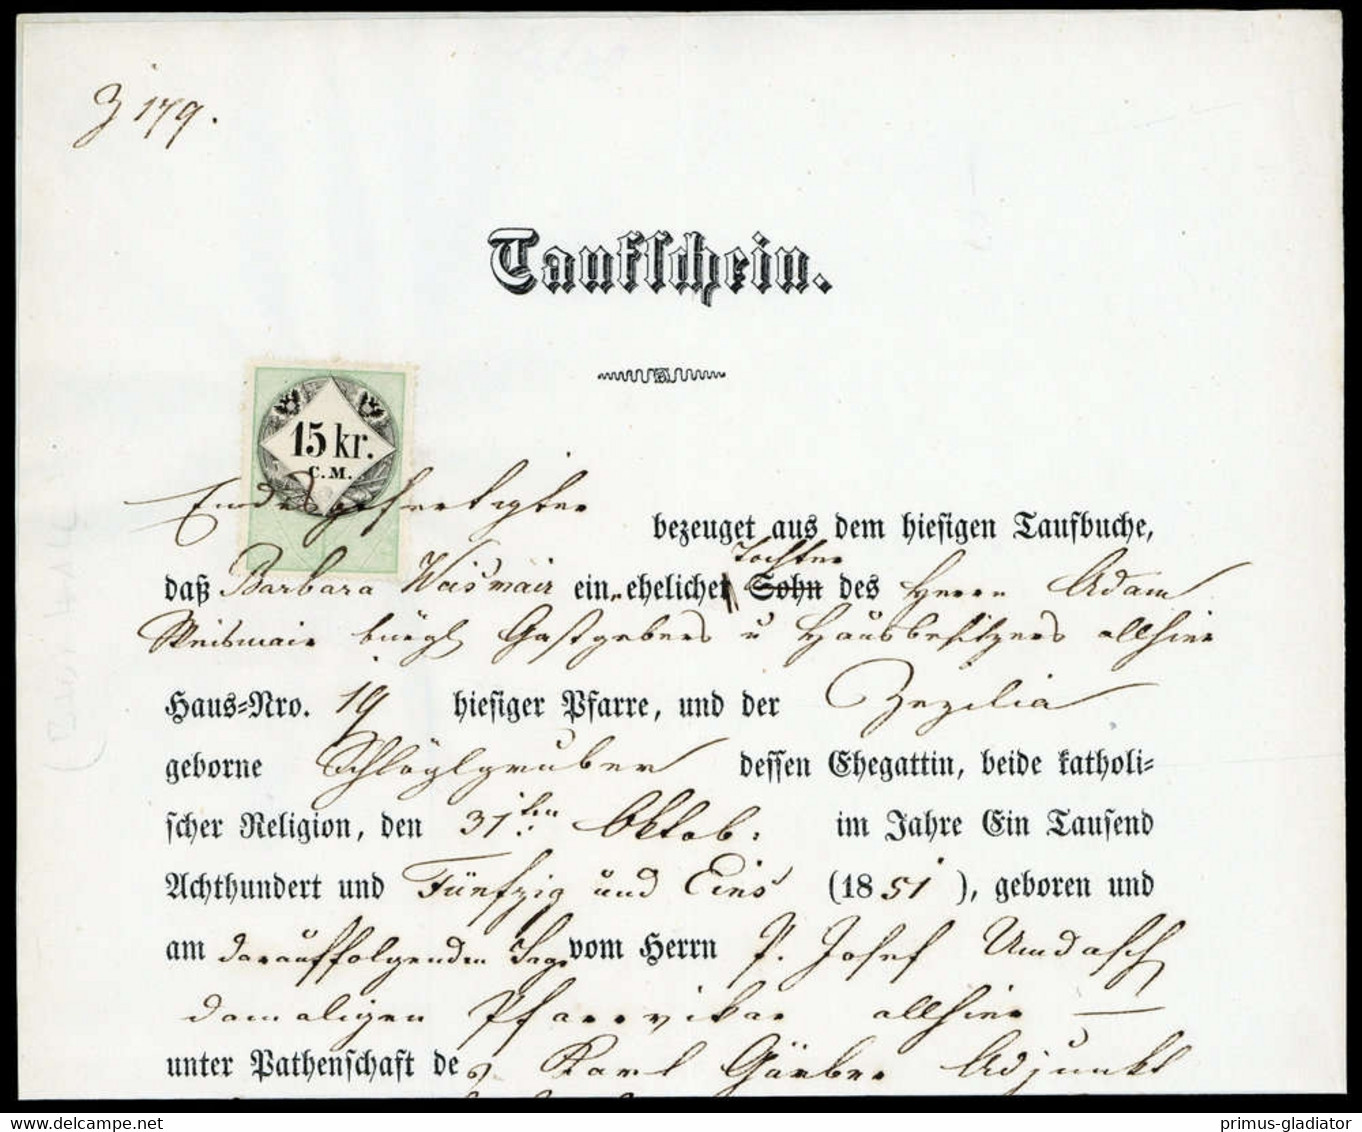 Z 179.
Taufschein.
15 kr.
C.M.
Endesgefertigter bezeuget aus dem hiesigen Taufbuche,
Tochter
daß Barbara Weismair ein „ eheliche Sohn des Herrn Adam
Weismair bürgl Gastgebers u Hausbesitzers allhier
Haus-Nro. 19 hiesiger Pfarre, und der Zezilia
geborne Schlöglgruber dessen Ehegattin, beide katholi-
scher Religion, den 31ten Oktob: im Jahre Ein Tausend
Achthundert und Fünfzig und Eins (1851), geboren und
am darauffolgenden Tage vom Herrn P. Josef Umdasch
damaligen Pfarrvikar allhier —
unter Pathenschaft des Karl Gärber Adjunkt
delcampe.net
primus-gladiator